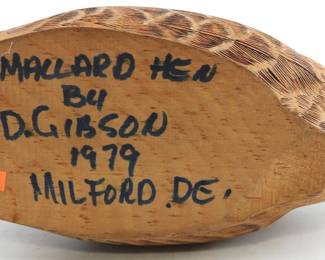 MALLARD HEN
BY
D. GIBSON
1979
MILFORD DE.